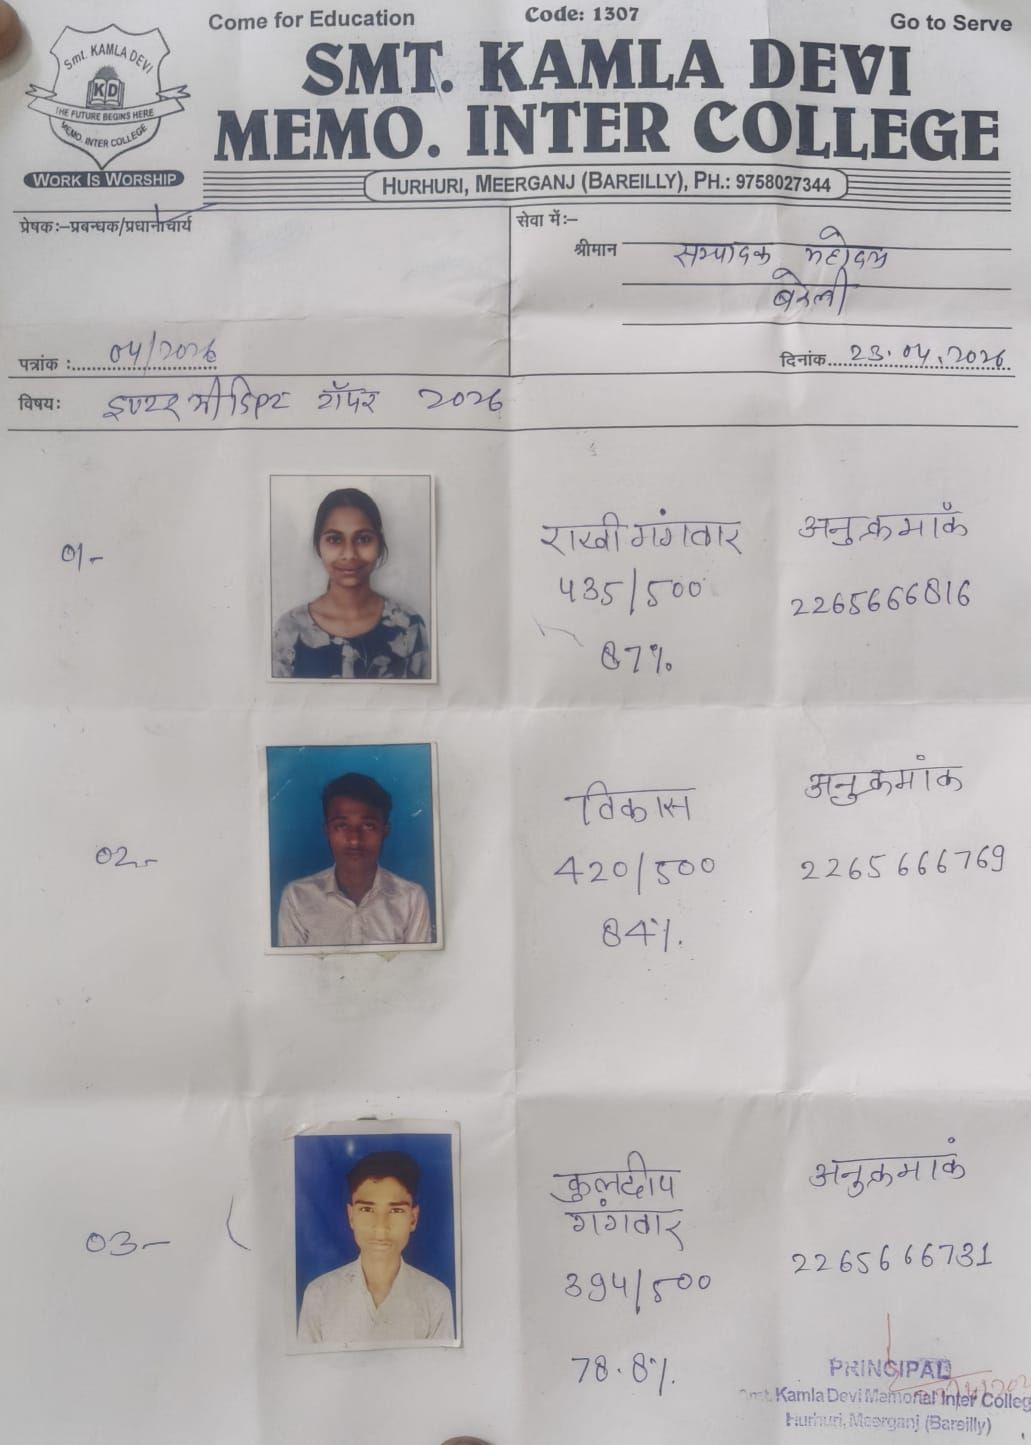 Come for Education
Code: 1307
Go to Serve
Smt. KAMLA DEVI
KD
THE FUTURE BEGINS HERE
MEMO. INTER COLLEGE
WORK IS WORSHIP
SMT. KAMLA DEVI
MEMO. INTER COLLEGE
HURHURI, MEERGANJ (BAREILLY), PH.: 9758027344
प्रेषक:–प्रबन्धक/प्रधानाचार्य
सेवा में:–
श्रीमान सम्पादक महोदय
बरेली
पत्रांक :. 04/2026
दिनांक 23.04.2026
विषय: इण्टरमीडिएट टॉपर 2026
01-
राखी गंगवार
435/500
87%
अनुक्रमांक
2265666816
02-
विकास
420/500
84%
अनुक्रमांक
2265666769
03-
कुलदीप
गंगवार
394/500
78.8%
अनुक्रमांक
2265666731
PRINCIPAL
Smt. Kamla Devi Memorial Inter Colleg
Hurhuri, Meerganj (Bareilly)